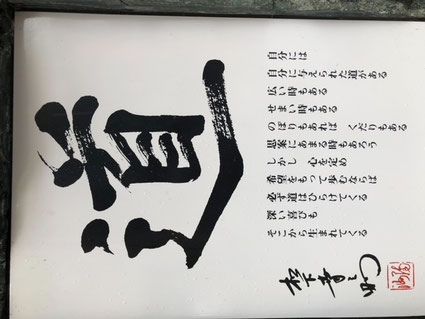 道
自分には
自分に与えられた道がある
広い時もある
せまい時もある
のぼりもあれば くだりもある
思案にあまる時もあろう
しかし 心を定め
希望をもって歩むならば
必ず道はひらけてくる
深い喜びも
そこから生まれてくる
松下幸之助